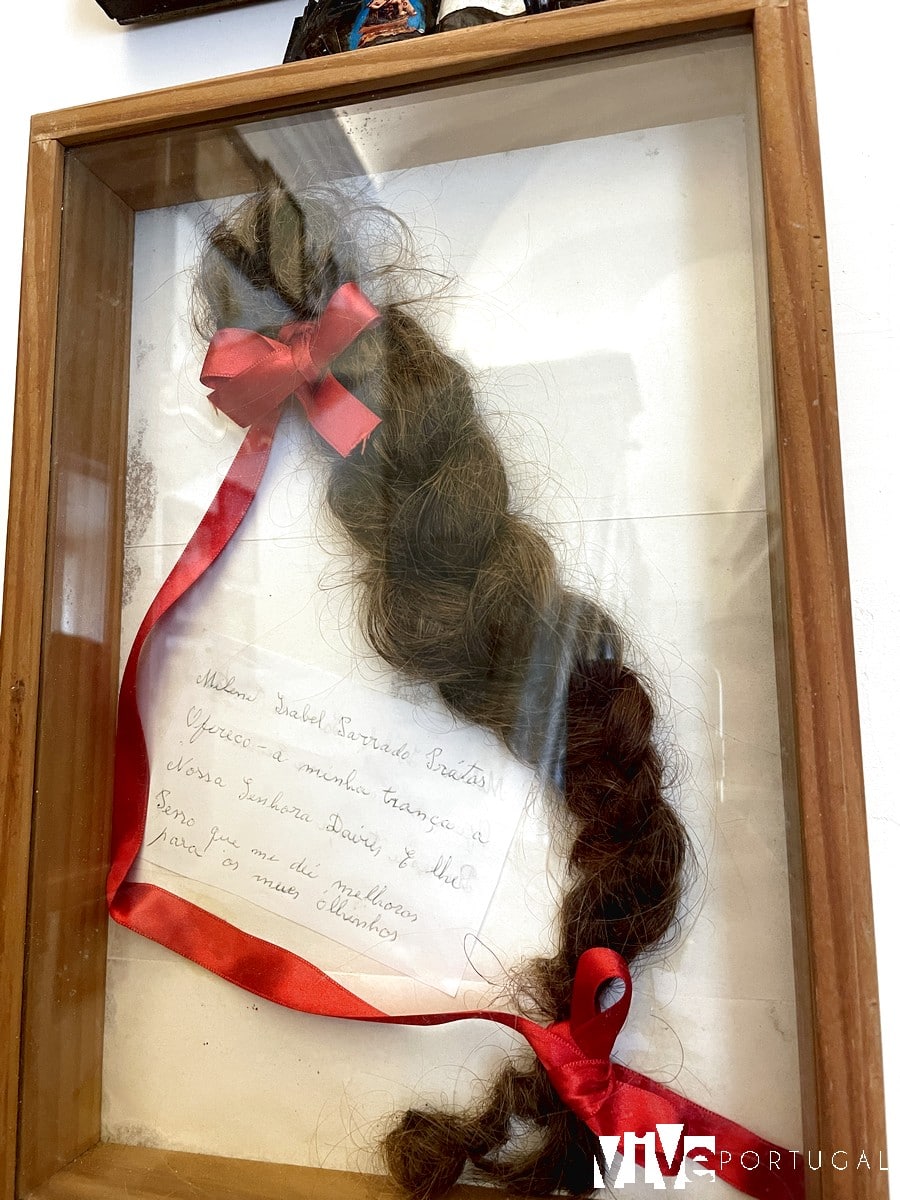 Milena Isabel Parrado Prátas
Ofereço-a minha trança a
Nossa Senhora Daires, E lhe
Peno que me dei melhoras
para os meus ólhinhos
VIVE PORTUGAL